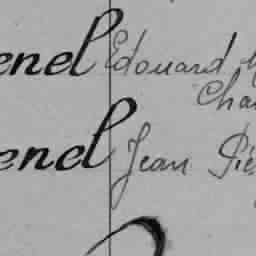 enel Edouard
Cha
enel Jean Piè